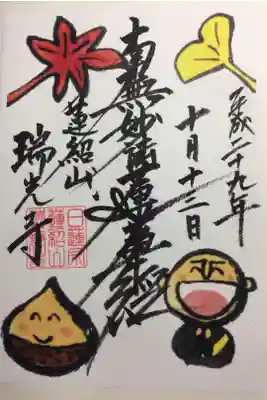 平成二十九年
十月十三日
南無妙法蓮華経
蓮紹山
瑞光寺
日蓮宗
蓮紹山